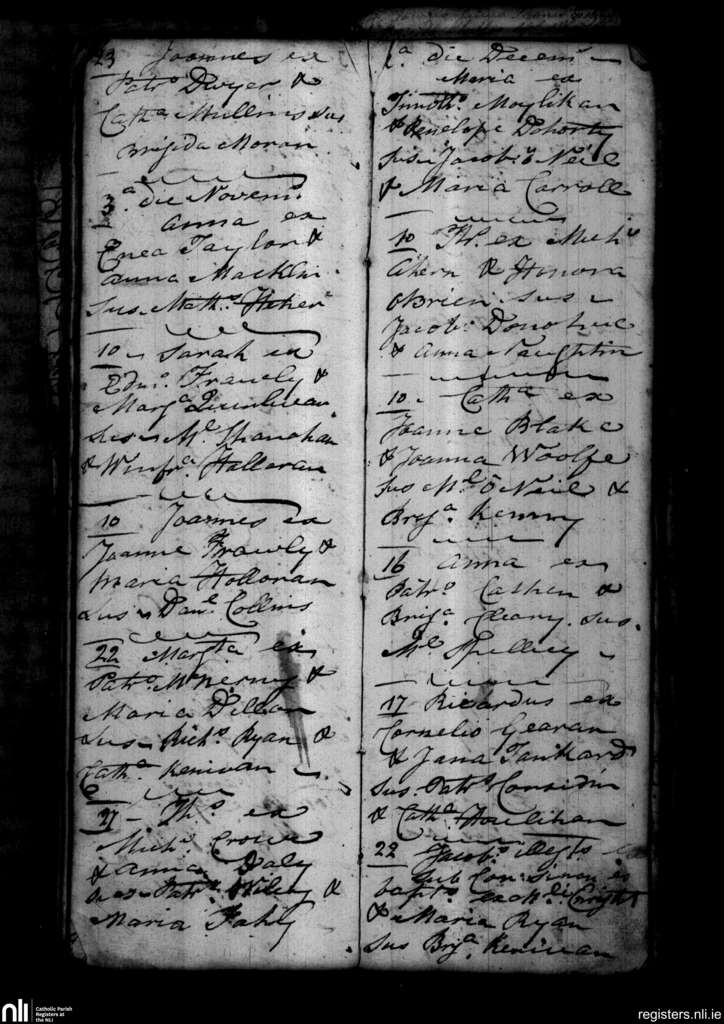 23 Joannes ex
Patro. Dwyer &
Catha. Mullins sus
Brigida Moran
3a. die Novem.
Anna ex
Enea Taylor &
Anna Macklin
Sus. Maths.
10 Sarah ex
Edm. Frawly &
Marga. Quinlivan
Sus Ml. Shanahan
& Winfra. Halloran
10 Joannes ex
Joanne Frawly &
Maria Holloran
Sus Danl. Collins
22 Margta. ex
Patro. McNerny &
Maria Dillon
Sus Richs. Ryan &
Catha. Kenivan
27 Ths. ex
Mich. Crowe
& Anna Daly
sus Patrs. Wiley &
Maria Fahy
1a. die Decem
Maria ex
Timoth. Moylikan
& Penelope Dohorty
Sus Jacobs ONeil
& Maria Carroll
10 Ths. ex Mich.
Ahern & Honora
OBrien sus
Jacob. Donohue
& Anna Naughtin
10 Catha. ex
Joanne Blake
& Joanna Woolfe
sus Ml. O Neil &
Briga. Kenny
16 Anna ex
Patro. Cashen &
Briga. Cleary. sus.
Ml. Spellicy
17 Ricardus ex
Cornelio Gearan
& Jana Tankard
Sus. Patrs. Considin
& Catha. Houlihan
22 Jacob. illegts.
sub Con.
bapts. Enright
& Maria Ryan
Sus Brga. Kenivan
nli
Catholic Parish
Registers at
the NLI
registers.nli.ie